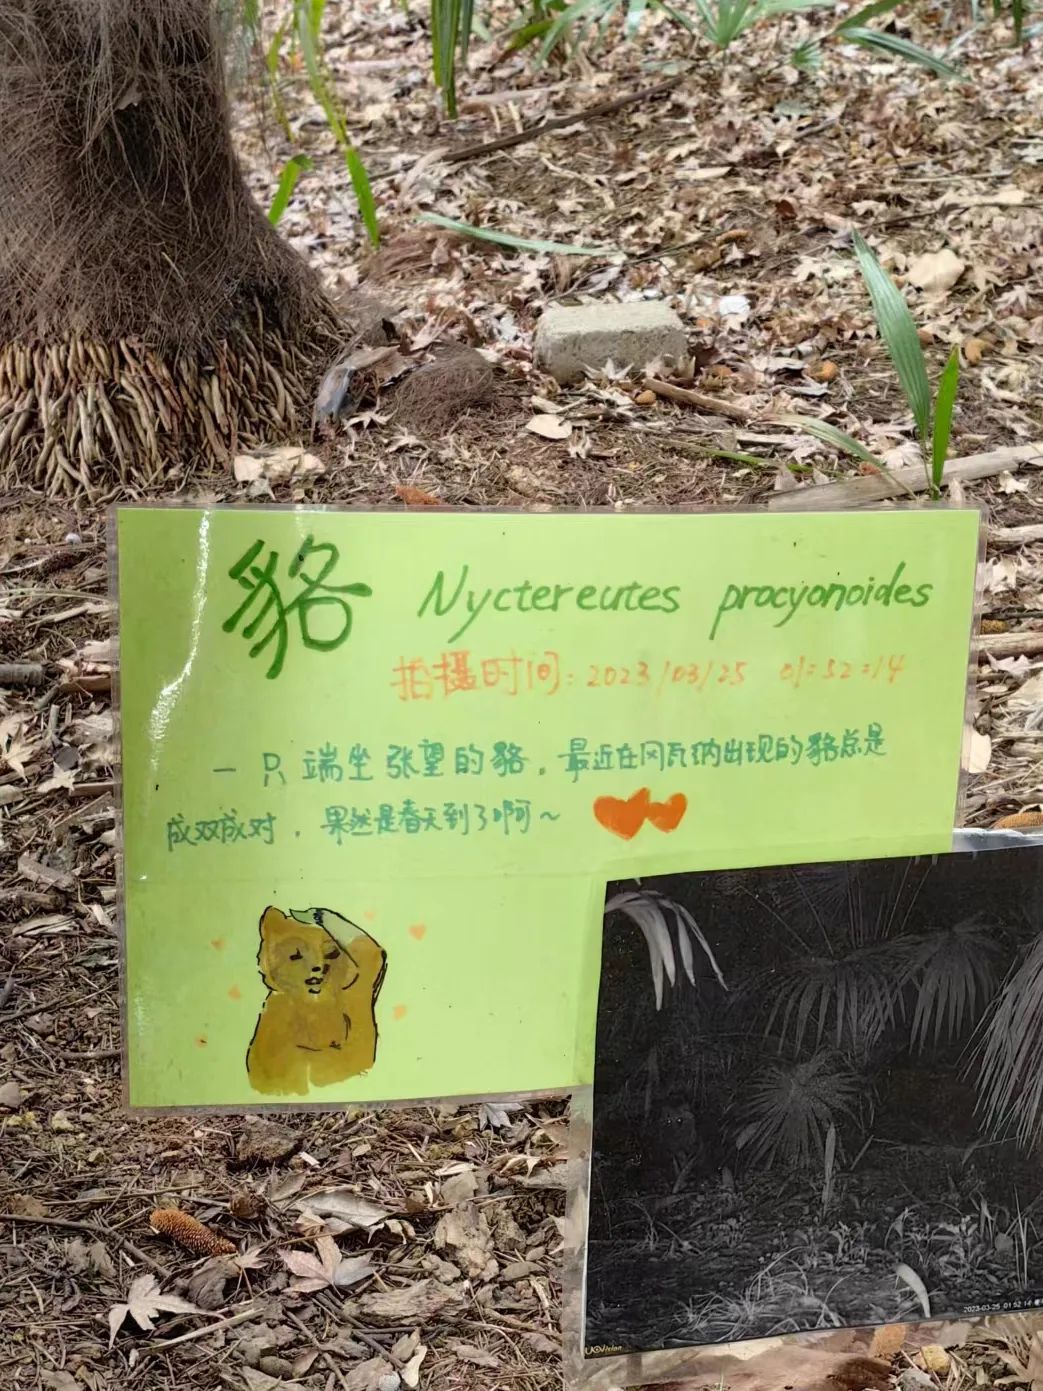 貉 Nyctereutes procyonoides
拍摄时间：2023/03/25 01:52:14
一只端坐张望的貉，最近在冈瓦纳出现的貉总是
成双成对，果然是春天到了啊~
2023-03-25 01:52:14
UOVision